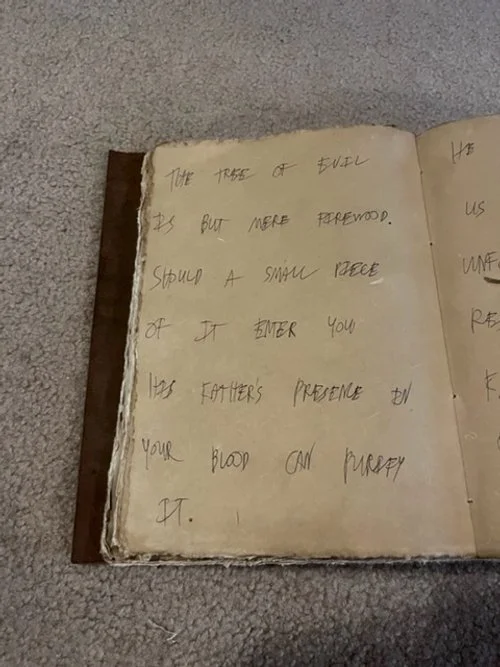 THE TREE OF EVIL
IS BUT MERE FIREWOOD.
SHOULD A SMALL PIECE
OF IT ENTER YOU
HIS FATHER'S PRESENCE IN
YOUR BLOOD CAN PURIFY
IT.
HE
US